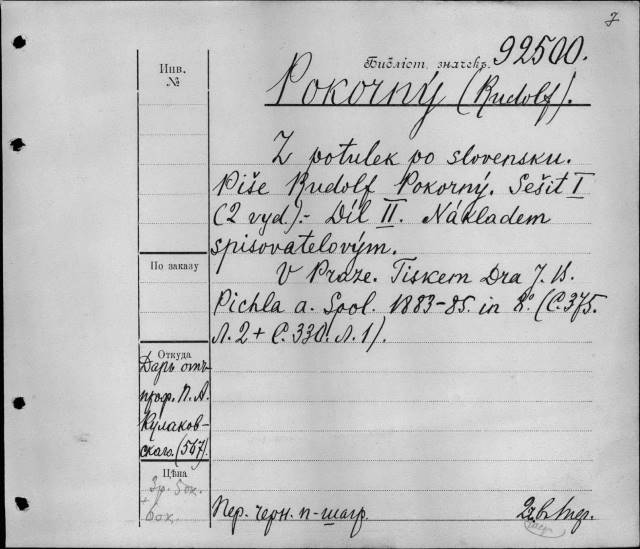 7
Библіот. значекъ 92500.
Инв.
№
Pokorný (Rudolf).
Z potulek po slovensku.
Píše Rudolf Pokorný. Sešit I
(2 vyd.).- Díl II. Nákladem
spisovatelovým.
V Praze. Tiskem Dra J. B.
Pichla a. Spol. 1883-85. in 8º. (С. 375.
Л. 2 + С. 330. Л. 1).
По заказу
Откуда
Даръ отъ
проф. П. А.
Кулаков-
скаго. (567).
Цѣна
3р. 50к.
+
60к.
Пер. черн. п-шагр.
2